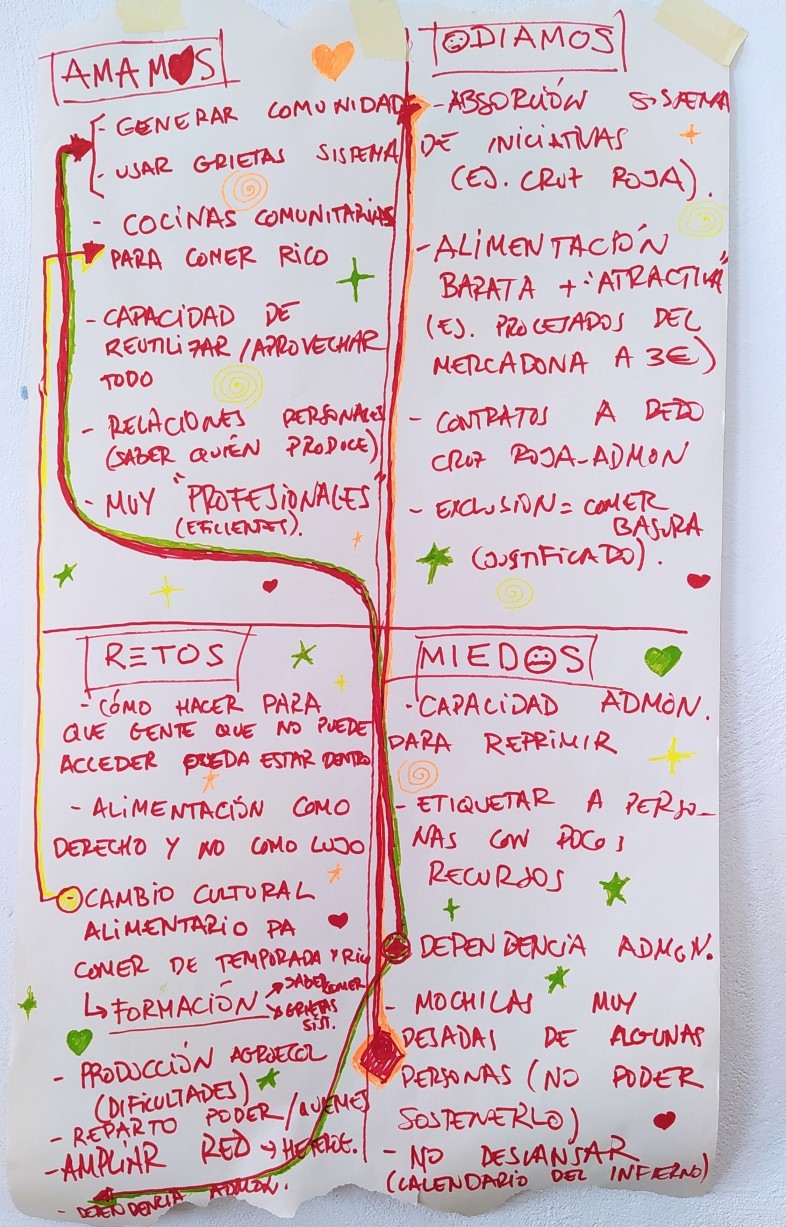 AMAMOS
- GENERAR COMUNIDAD
- USAR GRIETAS SISTEMA
- COCINAS COMUNITARIAS
PARA COMER RICO
- CAPACIDAD DE
REUTILIZAR/APROVECHAR
TODO
- RELACIONES PERSONALES
(SABER QUIÉN PRODUCE)
- MUY "PROFESIONALES"
(EFICIENTES).
ODIAMOS
- ABSORCIÓN SISTEMA
DE INICIATIVAS
(EJ. CRUZ ROJA).
- ALIMENTACIÓN
BARATA + "ATRACTIVA"
(EJ. PROCESADOS DEL
MERCADONA A 3€)
- CONTRATOS A DEDO
CRUZ ROJA-ADMON
- EXCLUSIÓN = COMER
BASURA
(JUSTIFICADO).
RETOS
- CÓMO HACER PARA
QUE GENTE QUE NO PUEDE
ACCEDER PUEDA ESTAR DENTRO
- ALIMENTACIÓN COMO
DERECHO Y NO COMO LUJO
- CAMBIO CULTURAL
ALIMENTARIO PA
COMER DE TEMPORADA Y RICO
↳ FORMACIÓN → SABER COMER
↘ GRIETAS SIST.
- PRODUCCIÓN AGROECOL
(DIFICULTADES)
- REPARTO PODER/QUEMES
- AMPLIAR RED →
- DEPENDENCIA ADMON.
MIEDOS
- CAPACIDAD ADMON.
PARA REPRIMIR
- ETIQUETAR A PERSO-
NAS CON POCOS
RECURSOS
DEPENDENCIA ADMON.
- MOCHILAS MUY
PESADAS DE ALGUNAS
PERSONAS (NO PODER
SOSTENERLO)
- NO DESCANSAR
(CALENDARIO DEL INFIERNO)